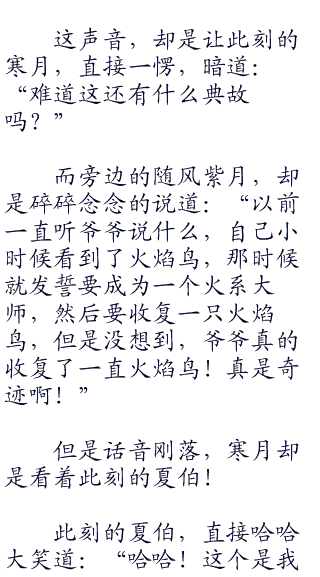 这声音，却是让此刻的
寒月，直接一愣，暗道：
“难道这还有什么典故
吗？”
而旁边的随风紫月，却
是碎碎念念的说道：“以前
一直听爷爷说什么，自己小
时候看到了火焰鸟，那时候
就发誓要成为一个火系大
师，然后要收复一只火焰
鸟，但是没想到，爷爷真的
收复了一直火焰鸟！真是奇
迹啊！”
但是话音刚落，寒月却
是看着此刻的夏伯！
此刻的夏伯，直接哈哈
大笑道：“哈哈！这个是我